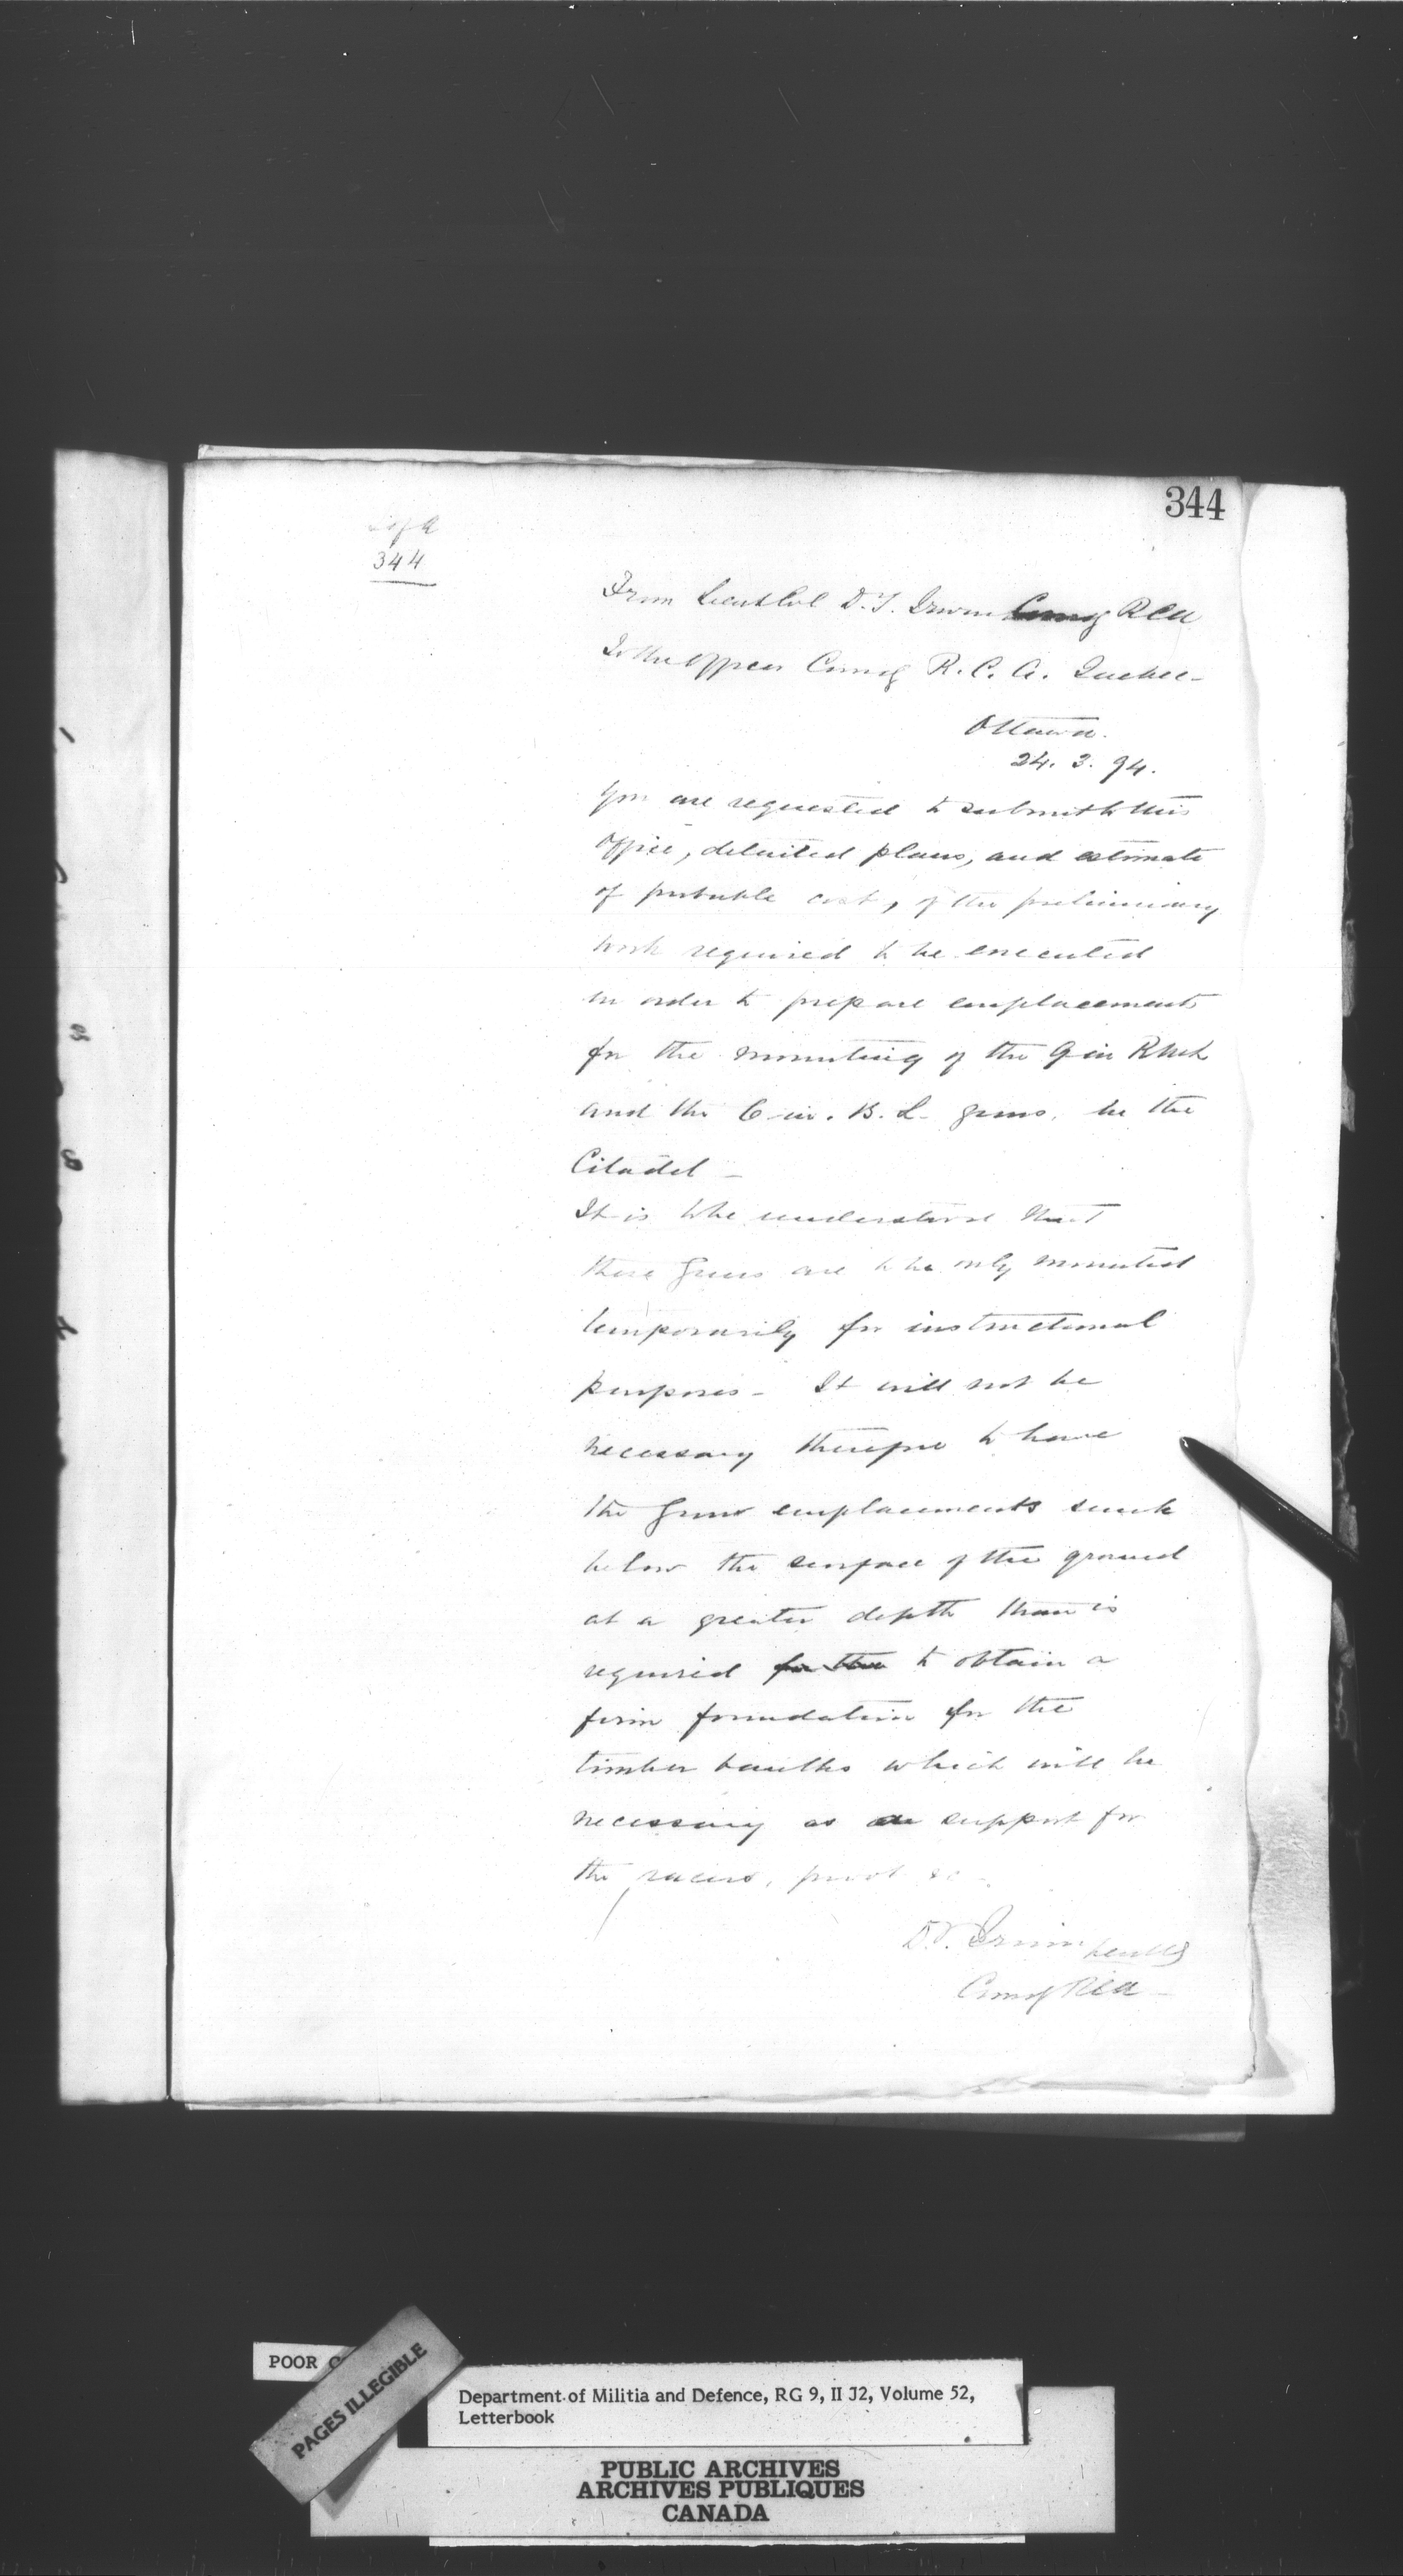 344
344
From Lieut Col D. T. Irwin Comg RCA
To the Officer Comdg R. C. A. Quebec -
Ottawa.
24. 3. 94.
You are requested to submit to this
Office, detailed plans, and estimate
of probable cost, of the preliminary
work required to be executed
in order to prepare emplacements
for the mounting of the 9 in R.M.L
and the 6 in. B. L. guns, in the
Citadel -
It is to be understood that
these guns are to be only mounted
temporarily for instructional
purposes - It will not be
necessary therefore to have
the guns emplacements sunk
below the surface of the ground
at a greater depth than is
required for the to obtain a
firm foundation for the
timber baulks which will be
necessary as a support for
the racers, pivot &c -
D.T. Irwin Lt Col
Comdg RCA -
POOR
PAGES ILLEGIBLE
Department of Militia and Defence, RG 9, II J2, Volume 52,
Letterbook
PUBLIC ARCHIVES
ARCHIVES PUBLIQUES
CANADA